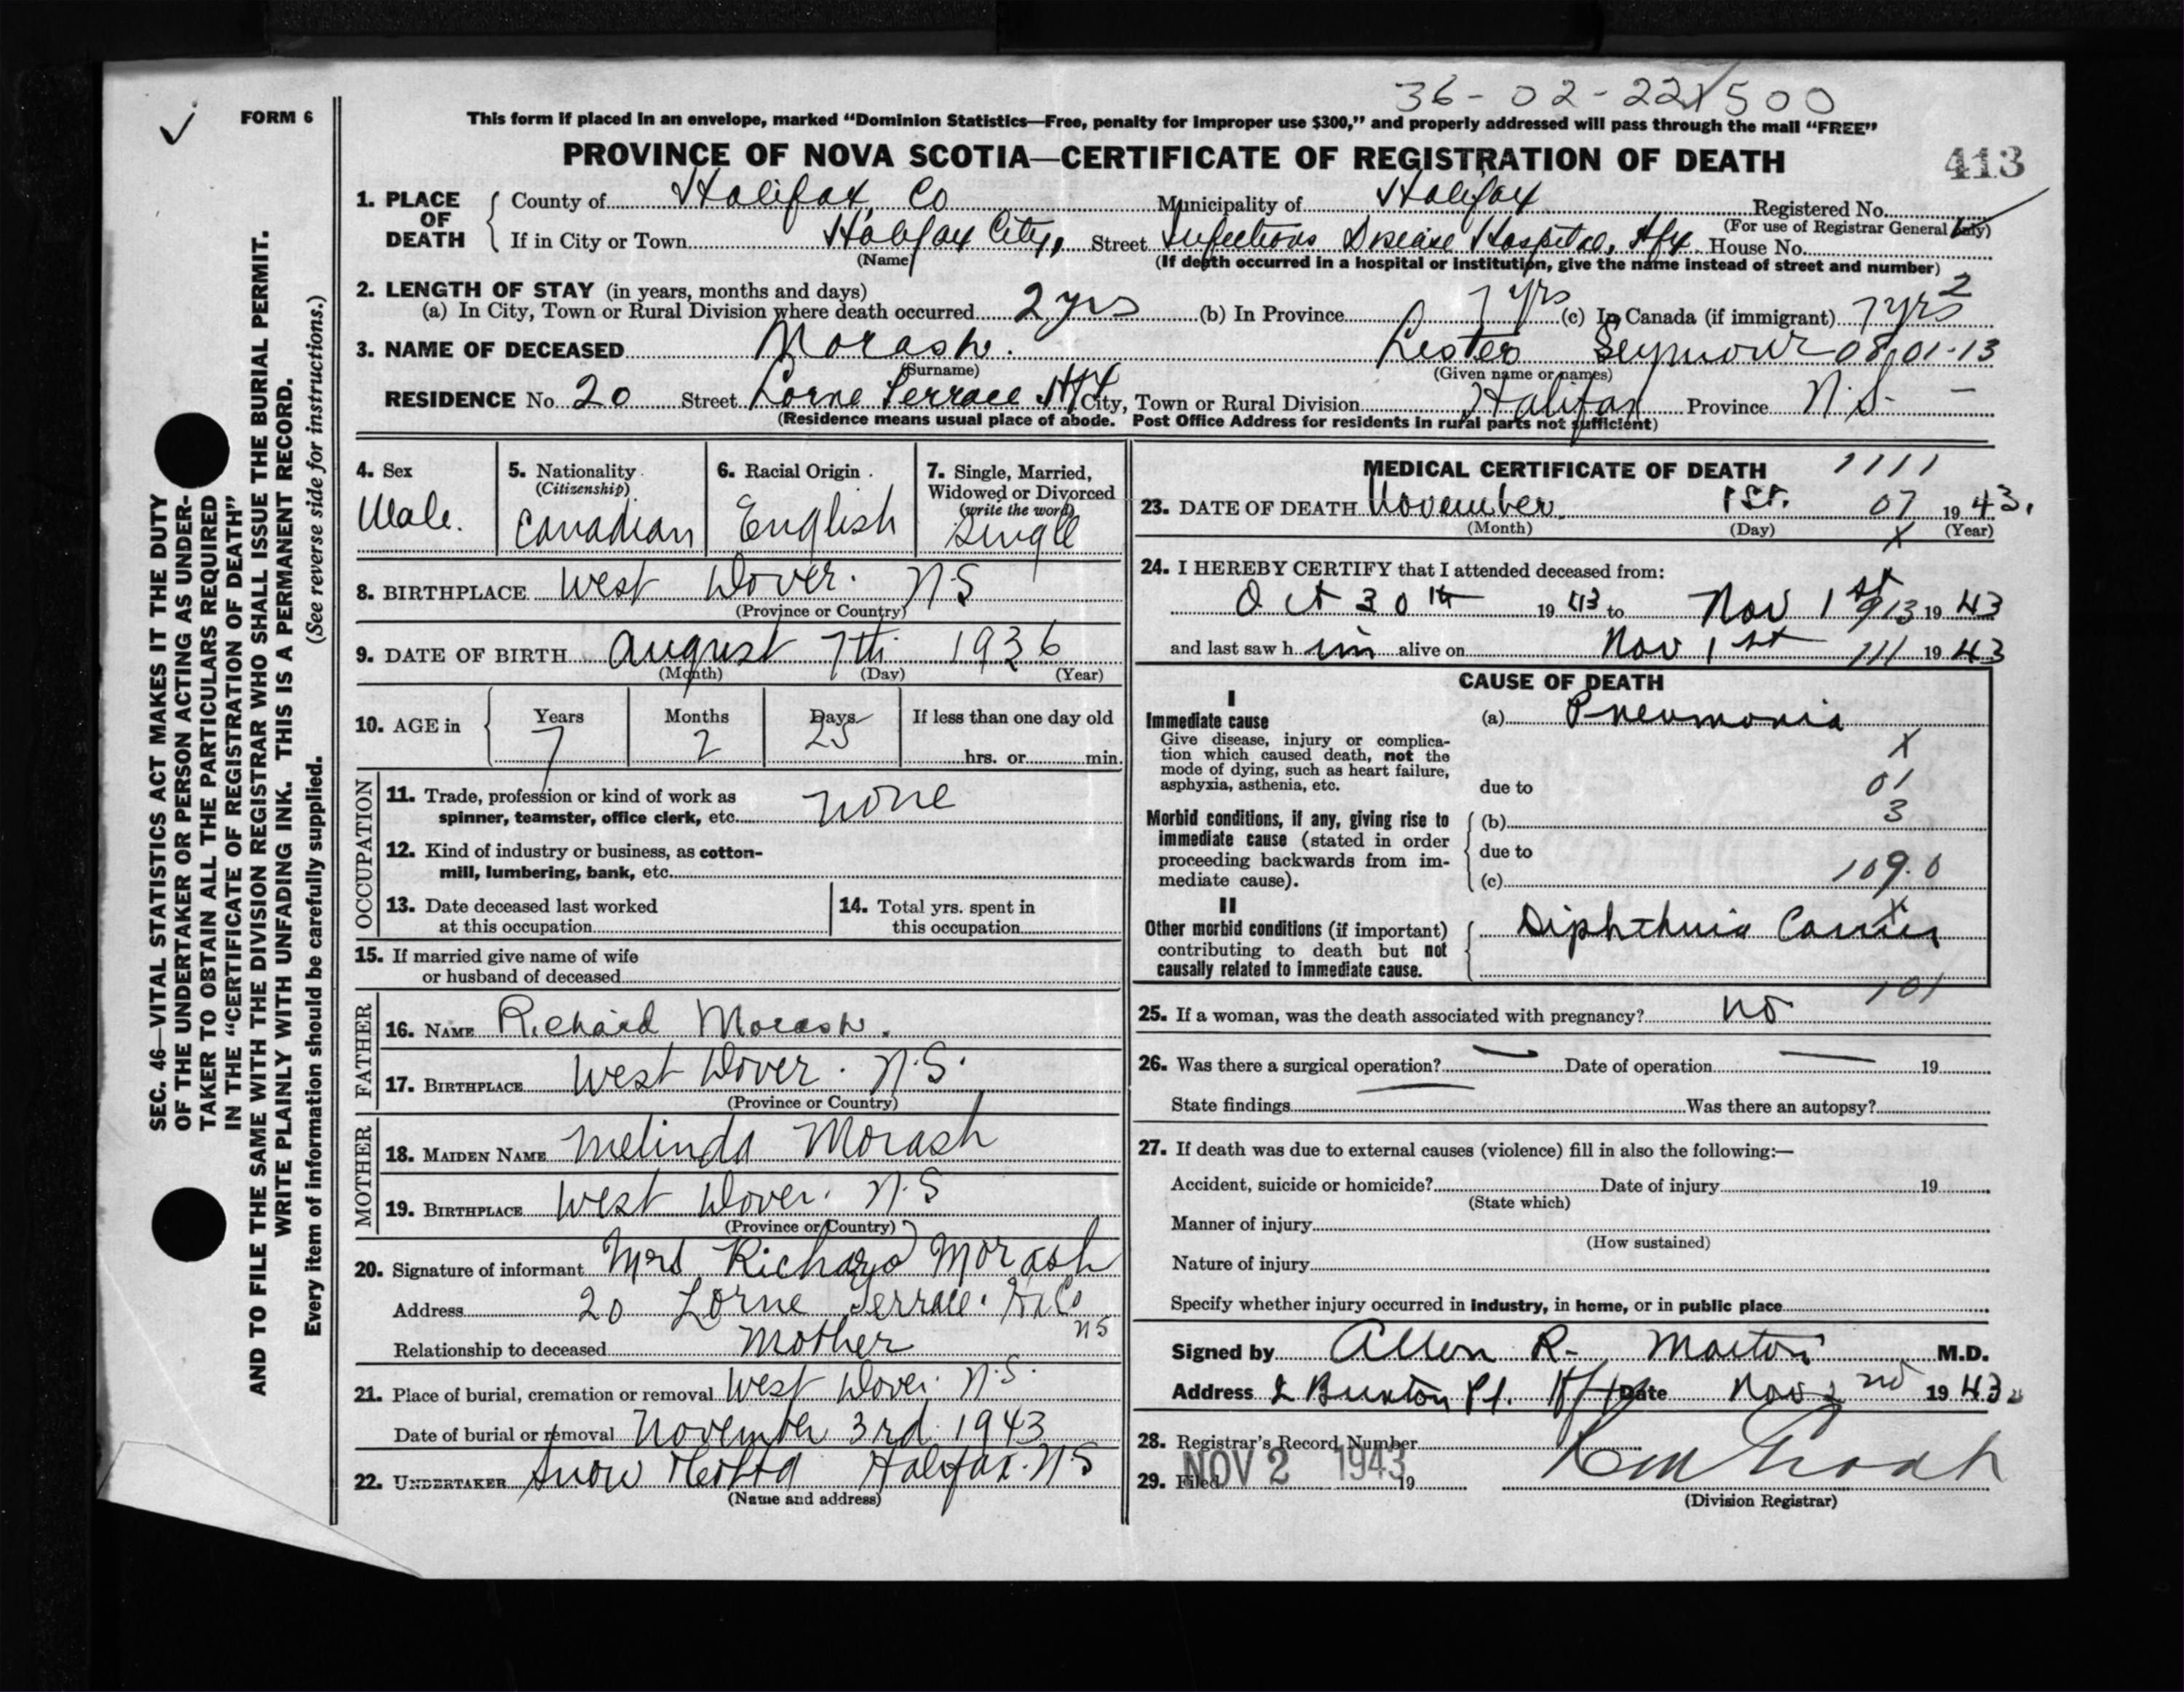 36-02-22X500
FORM 6
This form if placed in an envelope, marked "Dominion Statistics—Free, penalty for improper use $300," and properly addressed will pass through the mail "FREE"
PROVINCE OF NOVA SCOTIA—CERTIFICATE OF REGISTRATION OF DEATH
413
1. PLACE OF DEATH
County of Halifax Co Municipality of Halifax Registered No.
(For use of Registrar General only)
If in City or Town Halifax City, Street Infectious Disease Hospital, Hfx. House No.
(Name) (If death occurred in a hospital or institution, give the name instead of street and number)
2. LENGTH OF STAY (in years, months and days)
(a) In City, Town or Rural Division where death occurred 2 yrs (b) In Province 7 yrs (c) In Canada (if immigrant) 7 yrs 2
3. NAME OF DECEASED Morash. Lester Seymour 08-01-13
(Surname) (Given name or names)
RESIDENCE No. 20 Street Lorne Terrace Hfx City, Town or Rural Division Halifax Province N.S. —
(Residence means usual place of abode. Post Office Address for residents in rural parts not sufficient)
4. Sex
Male.
5. Nationality
(Citizenship)
Canadian
6. Racial Origin
English
7. Single, Married,
Widowed or Divorced
(write the word)
Single
8. BIRTHPLACE West Dover. N.S
(Province or Country)
9. DATE OF BIRTH August 7th 1936
(Month) (Day) (Year)
10. AGE in
Years Months Days If less than one day old
7 2 25 hrs. or min.
OCCUPATION
11. Trade, profession or kind of work as
spinner, teamster, office clerk, etc. none
12. Kind of industry or business, as cotton-
mill, lumbering, bank, etc.
13. Date deceased last worked
at this occupation
14. Total yrs. spent in
this occupation
15. If married give name of wife
or husband of deceased
FATHER
16. NAME Richard Morash.
17. BIRTHPLACE West Dover. N.S.
(Province or Country)
MOTHER
18. MAIDEN NAME Melinda Morash
19. BIRTHPLACE West Dover. N.S
(Province or Country)
20. Signature of informant Mrs Richard Morash
Address 20 Lorne Terrace. NS
Relationship to deceased Mother
21. Place of burial, cremation or removal West Dover. N.S.
Date of burial or removal November 3rd. 1943
22. UNDERTAKER Snow Halifax. N.S
(Name and address)
MEDICAL CERTIFICATE OF DEATH 1111
23. DATE OF DEATH November 1st. 07 1943.
(Month) (Day) X (Year)
24. I HEREBY CERTIFY that I attended deceased from:
Oct 30th 1943 to Nov 1st 913 1943
and last saw him alive on Nov 1st 111 1943
CAUSE OF DEATH
I
Immediate cause
Give disease, injury or complica-
tion which caused death, not the
mode of dying, such as heart failure,
asphyxia, asthenia, etc.
(a) Pneumonia
X
due to 01
3
Morbid conditions, if any, giving rise to
immediate cause (stated in order
proceeding backwards from im-
mediate cause).
(b)
due to
(c) 109.0
X
II
Other morbid conditions (if important)
contributing to death but not
causally related to immediate cause.
Diphtheria Carrier
101
25. If a woman, was the death associated with pregnancy? no
26. Was there a surgical operation? — Date of operation — 19
State findings Was there an autopsy?
27. If death was due to external causes (violence) fill in also the following:—
Accident, suicide or homicide? Date of injury 19
(State which)
Manner of injury
(How sustained)
Nature of injury
Specify whether injury occurred in industry, in home, or in public place
Signed by Allen R. Morton M.D.
Address 2 Buxton Pl. Hfx Date Nov 2nd 1943
28. Registrar's Record Number
29. Filed NOV 2 1943 19
(Division Registrar)
SEC. 46—VITAL STATISTICS ACT MAKES IT THE DUTY
OF THE UNDERTAKER OR PERSON ACTING AS UNDER-
TAKER TO OBTAIN ALL THE PARTICULARS REQUIRED
IN THE "CERTIFICATE OF REGISTRATION OF DEATH"
AND TO FILE THE SAME WITH THE DIVISION REGISTRAR WHO SHALL ISSUE THE BURIAL PERMIT.
WRITE PLAINLY WITH UNFADING INK. THIS IS A PERMANENT RECORD.
Every item of information should be carefully supplied. (See reverse side for instructions.)